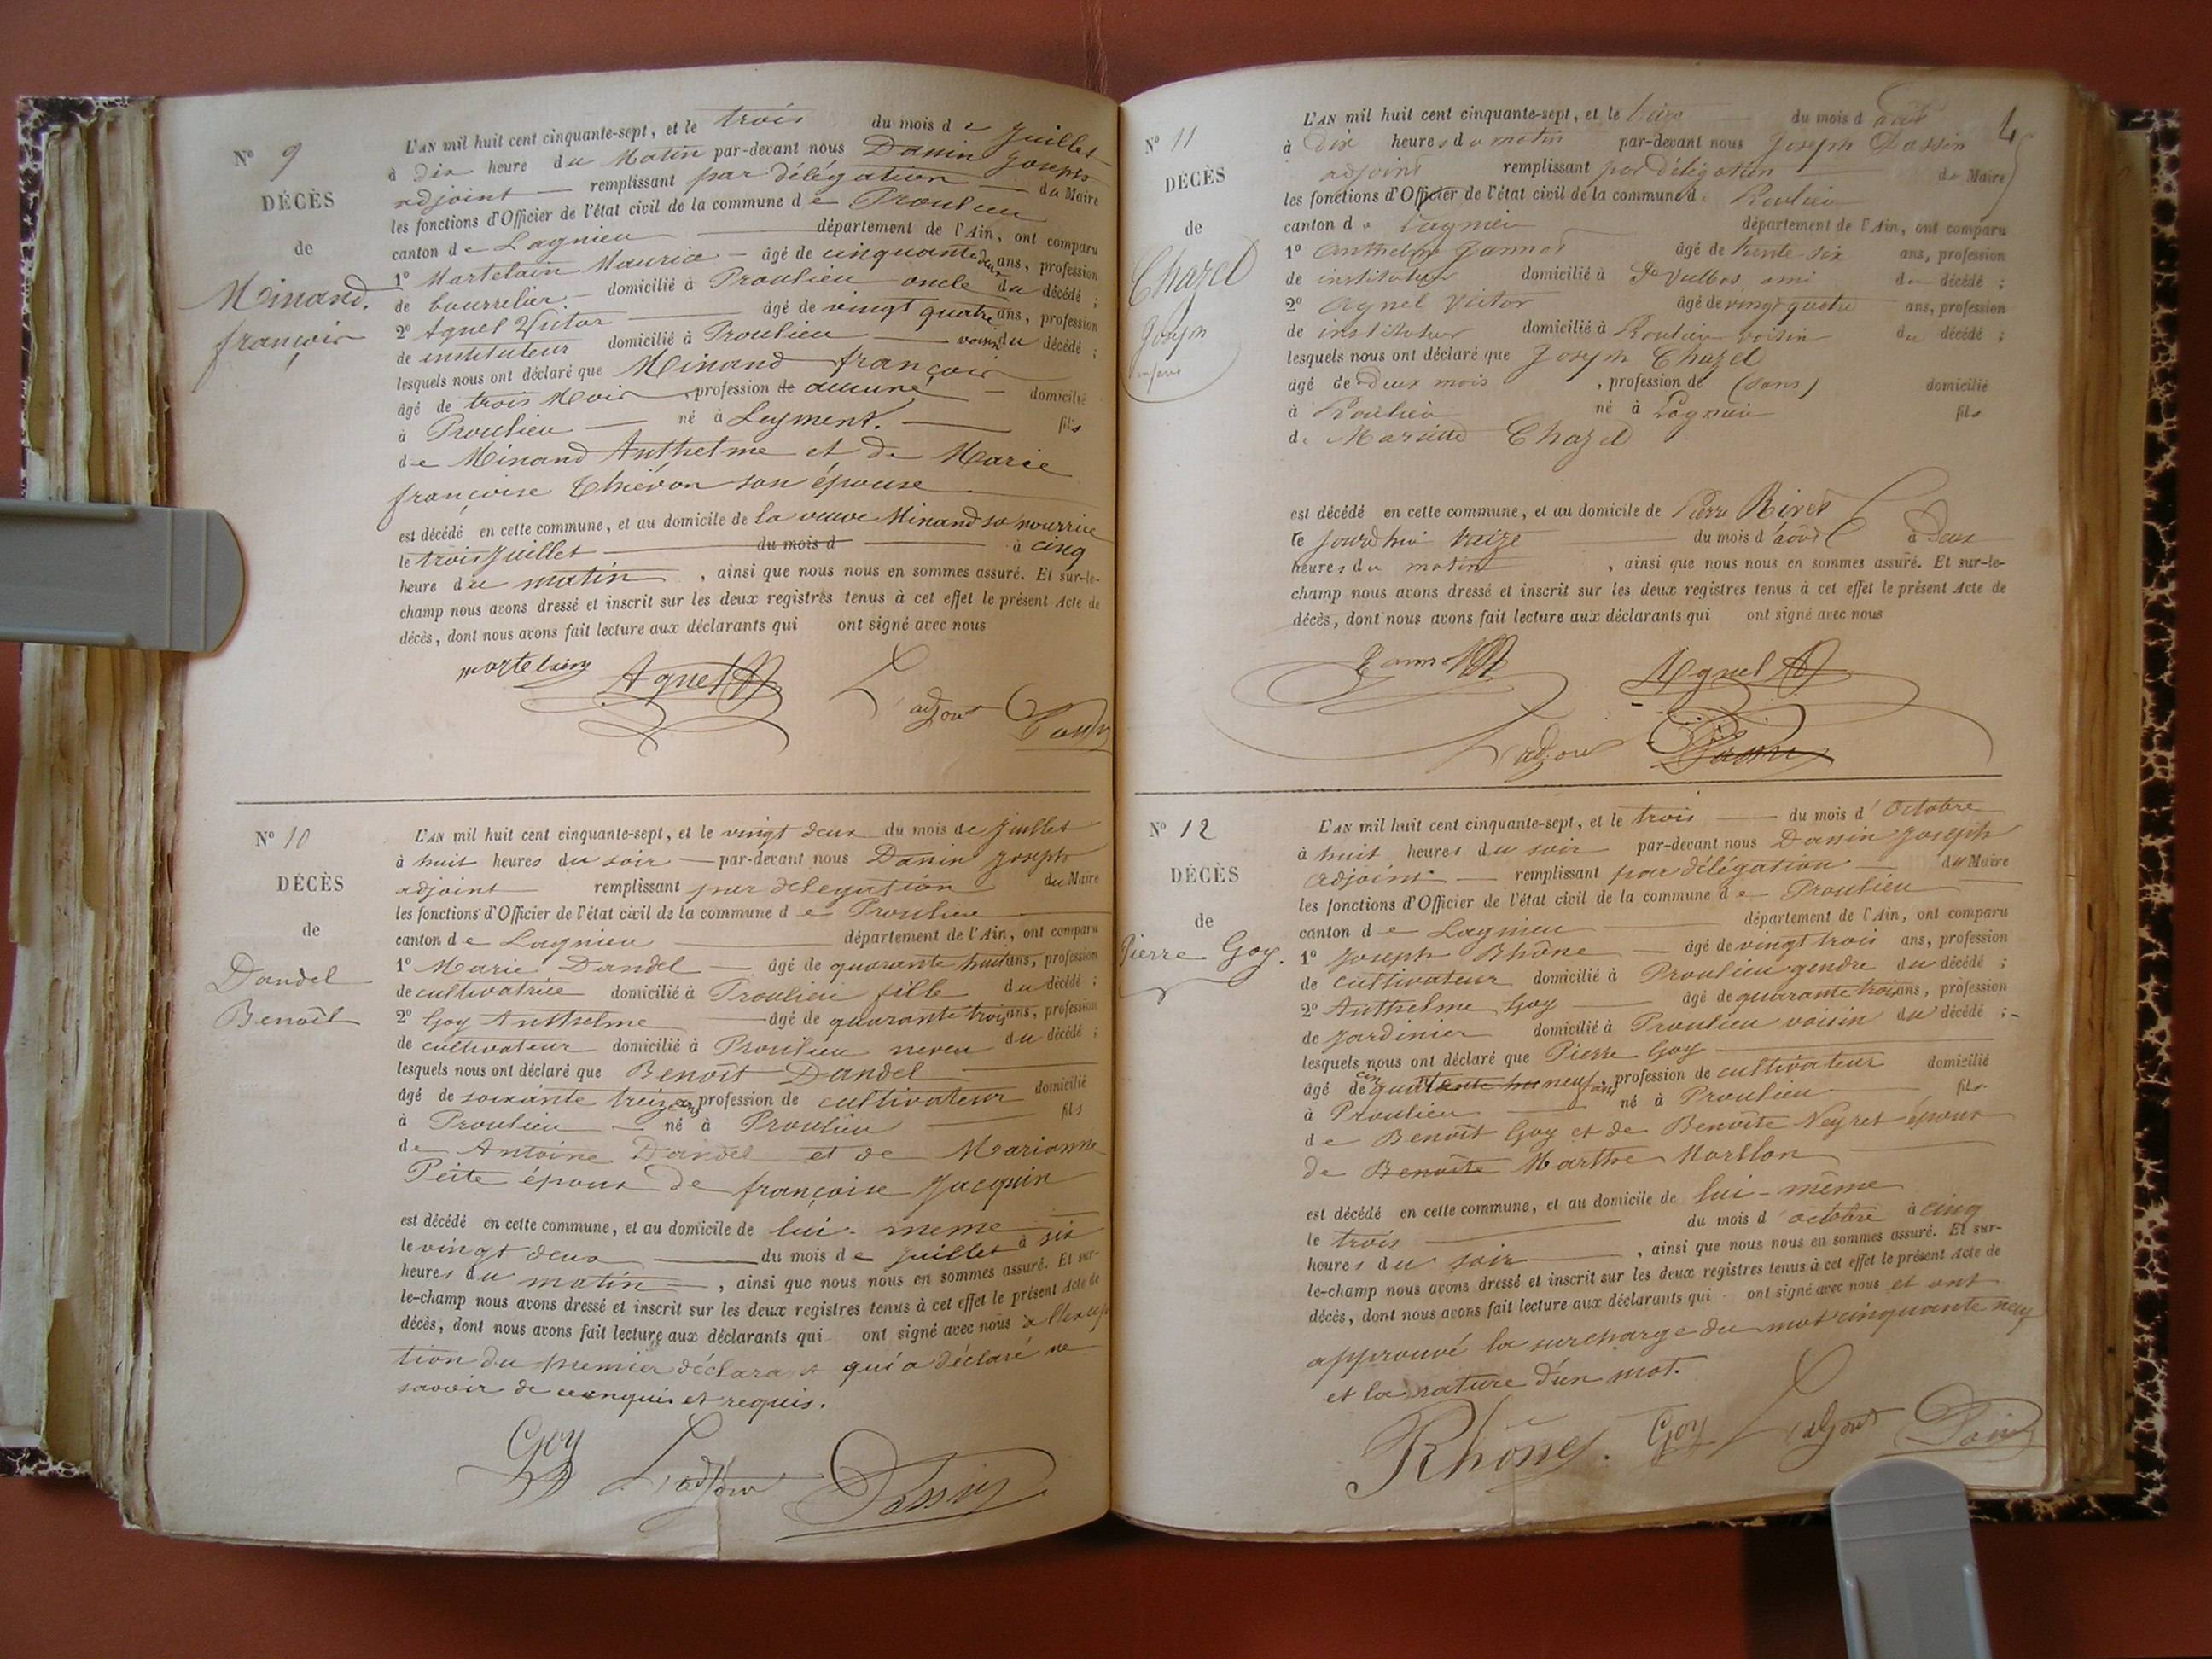 N° 9
DÉCÈS
de
Minand.
françois
L'AN mil huit cent cinquante-sept, et le trois du mois de Juillet
à dix heure du Matin par-devant nous Dassin Joseph
adjoint remplissant par délégation du Maire
les fonctions d'Officier de l'état civil de la commune de Proulieu
canton de Lagnieu département de l'Ain, ont comparu
1° Martelain Maurice âgé de cinquante deux ans, profession
de bourrelier domicilié à Proulieu oncle du décédé ;
2° Agnel Victor âgé de vingt quatre ans, profession
de instituteur domicilié à Proulieu voisin du décédé ;
lesquels nous ont déclaré que Minand françois
âgé de trois Mois, profession de aucune domicilié
à Proulieu né à Leyment. fils
de Minand Anthelme et de Marie
françoise Thiévon son épouse
est décédé en cette commune, et au domicile de la veuve Minand sa nourrice
le trois Juillet du mois d à cinq
heure du matin, ainsi que nous nous en sommes assuré. Et sur-le-
champ nous avons dressé et inscrit sur les deux registres tenus à cet effet le présent Acte de
décès, dont nous avons fait lecture aux déclarants qui ont signé avec nous
Agnel L'adjoint Dassin
N° 10
DÉCÈS
de
Dandel
Benoît
L'AN mil huit cent cinquante-sept, et le vingt deux du mois de Juillet
à huit heures du soir par-devant nous Dassin Joseph
adjoint remplissant par délégation du Maire
les fonctions d'Officier de l'état civil de la commune de Proulieu
canton de Lagnieu département de l'Ain, ont comparu
1° Marie Dandel âgé de quarante huit ans, profession
de cultivatrice domicilié à Proulieu fille du décédé ;
2° Goy Anthelme âgé de quarante trois ans, profession
de cultivateur domicilié à Proulieu neveu du décédé ;
lesquels nous ont déclaré que Benoît Dandel
âgé de soixante treize ans, profession de cultivateur domicilié
à Proulieu né à Proulieu fils
de Antoine Dandel et de Marianne
époux de françoise Jacquin
est décédé en cette commune, et au domicile de lui-meme
le vingt deux du mois de Juillet à six
heures du matin, ainsi que nous nous en sommes assuré. Et sur-
le-champ nous avons dressé et inscrit sur les deux registres tenus à cet effet le présent Acte de
décès, dont nous avons fait lecture aux déclarants qui ont signé avec nous à l'excep
tion du premier déclarant qui a déclaré ne
savoir de ce enquis et requis.
Goy L'adjoint Dassin
4
N° 11
DÉCÈS
de
Chazel
Joseph
L'AN mil huit cent cinquante-sept, et le treize du mois d'août
à dix heures du matin par-devant nous Joseph Dassin
adjoint remplissant par délégation du Maire
les fonctions d'Officier de l'état civil de la commune de Proulieu
canton de Lagnieu département de l'Ain, ont comparu
1° Anthelme Jannot âgé de trente-six ans, profession
de instituteur domicilié à St Vulbas ami du décédé ;
2° Agnel Victor âgé de vingt quatre ans, profession
de instituteur domicilié à Proulieu voisin du décédé ;
lesquels nous ont déclaré que Joseph Chazel
âgé de deux mois, profession de (sans) domicilié
à Proulieu né à Lagnieu fils
de Mariette Chazel
est décédé en cette commune, et au domicile de Pierre Rivet
le jourd'hui treize du mois d'août à deux
heures du matin, ainsi que nous nous en sommes assuré. Et sur-le-
champ nous avons dressé et inscrit sur les deux registres tenus à cet effet le présent Acte de
décès, dont nous avons fait lecture aux déclarants qui ont signé avec nous
Jannot Agnel
L'adjoint Dassin
N° 12
DÉCÈS
de
Pierre Goy.
L'AN mil huit cent cinquante-sept, et le trois du mois d'Octobre
à huit heures du soir par-devant nous Dassin Joseph
adjoint remplissant par délégation du Maire
les fonctions d'Officier de l'état civil de la commune de Proulieu
canton de Lagnieu département de l'Ain, ont comparu
1° Joseph Rhône âgé de vingt trois ans, profession
de cultivateur domicilié à Proulieu gendre du décédé ;
2° Anthelme Goy âgé de quarante trois ans, profession
de Jardinier domicilié à Proulieu voisin du décédé ;
lesquels nous ont déclaré que Pierre Goy
âgé de cinquante neuf ans, profession de cultivateur domicilié
à Proulieu né à Proulieu fils
de Benoît Goy et de Benoîte Neyret époux
de Benoîte Marthe Morllon
est décédé en cette commune, et au domicile de lui-même
le trois du mois d'octobre à cinq
heures du soir, ainsi que nous nous en sommes assuré. Et sur-
le-champ nous avons dressé et inscrit sur les deux registres tenus à cet effet le présent Acte de
décès, dont nous avons fait lecture aux déclarants qui ont signé avec nous et ont
approuvé la surcharge du mot cinquante neuf
et la rature d'un mot.
Rhône. Goy L'adjoint Dassin